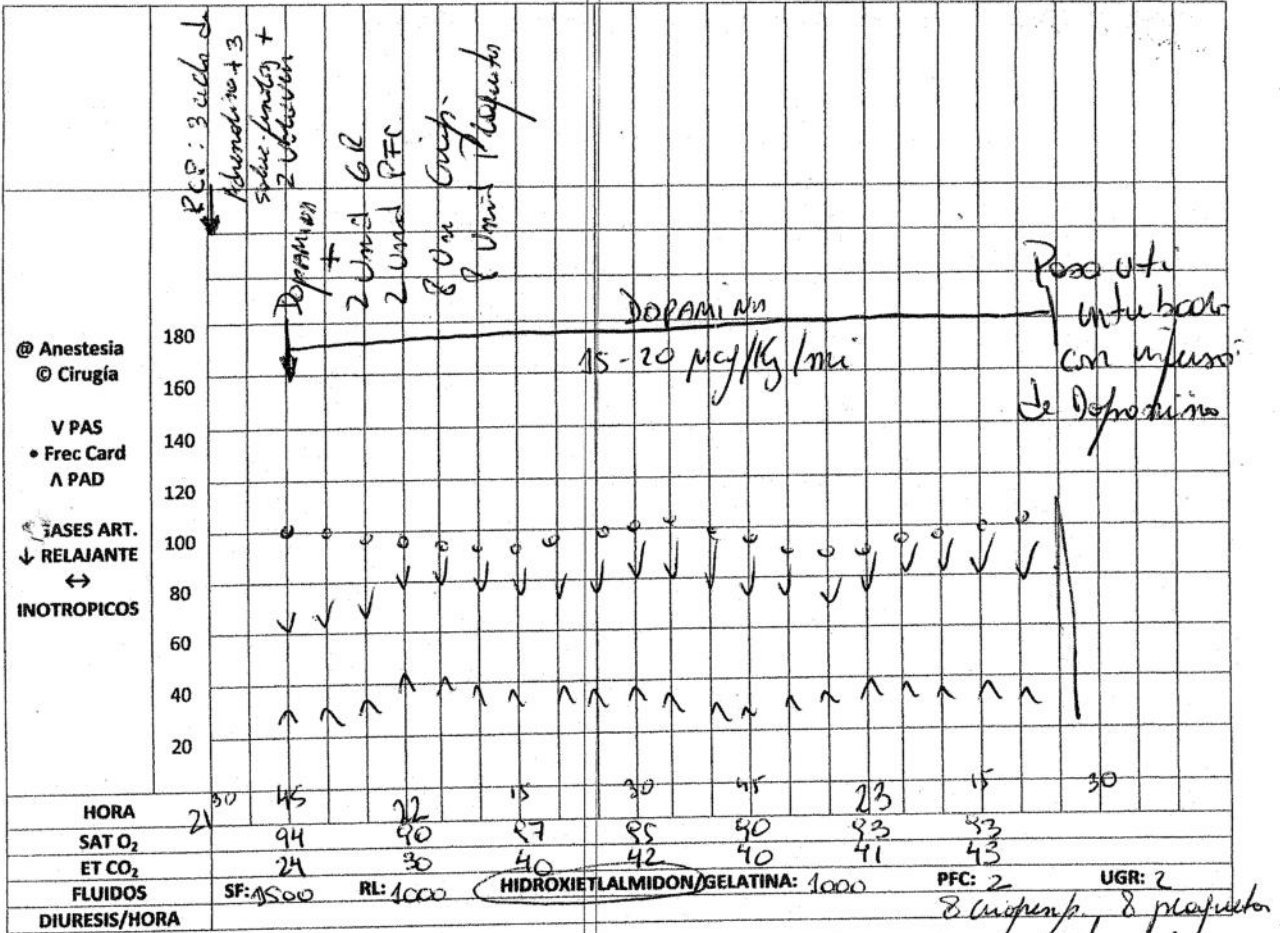 RCP: 3 ciclos d
Adrenalina + 3
+
2 Voluven
Dopamina
+
2 Unid GR
2 Unid PFC
8 Un Criop.
8 Unid Plaquetas
DOPAMINA
15-20 mcg/Kg/mi
Paso uti
intubado
con infusi
de Dopamina
180
@ Anestesia
© Cirugía
160
V PAS
140
• Frec Card
Λ PAD
120
GASES ART.
100
↓ RELAJANTE
↔
80
INOTROPICOS
60
40
20
HORA 21 30 45 22 15 30 45 23 15 30
SAT O₂ 94 90 97 95 90 93 93
ET CO₂ 24 30 40 42 40 41 43
FLUIDOS SF: 1500 RL: 1000 HIDROXIETLALMIDON/GELATINA: 1000 PFC: 2 UGR: 2
DIURESIS/HORA 8 criopresp. 8 plaquetas